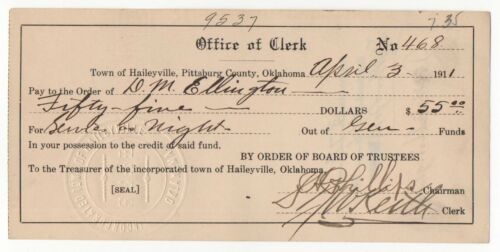 9537 735
Office of Clerk No 468
Town of Haileyville, Pittsburg County, Oklahoma April 3 1911
Pay to the Order of D. M. Ellington
Fifty-five DOLLARS $ 55.00
For Night Out of Gen Funds
In your possession to the credit of said fund.
BY ORDER OF BOARD OF TRUSTEES
To the Treasurer of the incorporated town of Haileyville, Oklahoma.
Phillips Chairman
[SEAL] Keith Clerk